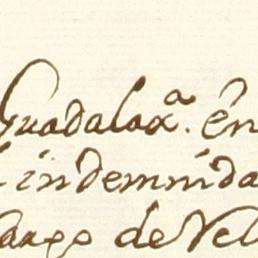 Guadalaxª. en
indemnida
cargo de Vel